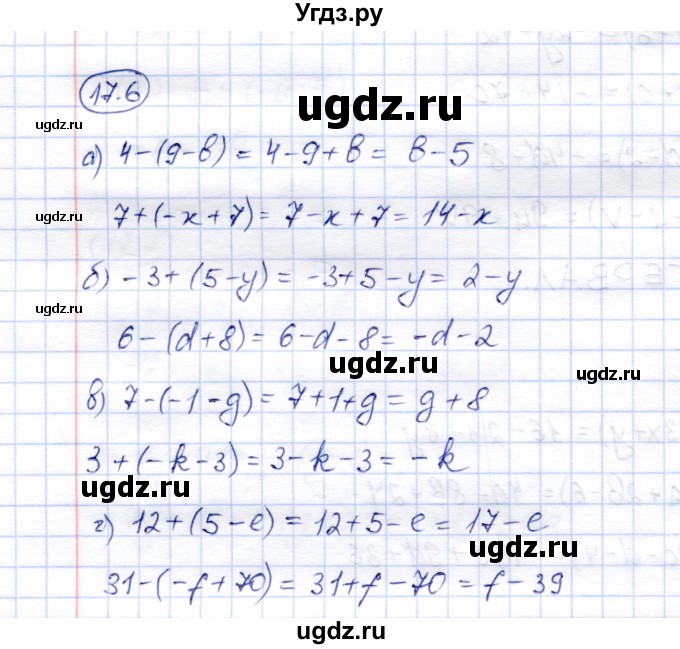 Угдз.ру
17.6
ugdz.ru
ugdz.ru
а) 4-(9-в) = 4-9+в = в-5
ugdz.ru
7+(-x+7)= 7-x+7= 14-x
б) -3+(5-y) = -3+5-y= 2-y
ugdz.ru
6-(d+8)= 6-d-8= -d-2
ugdz.ru
ugdz.ru
в) 7-(-1-g)= 7+1+g = g+8
3+(-k-3)= 3-k-3= -k
ugdz.ru
г) 12+(5-e) = 12+5-e = 17-e
ugdz.ru
31-(-f+70)= 31+f-70 = f-39
ugdz.ru